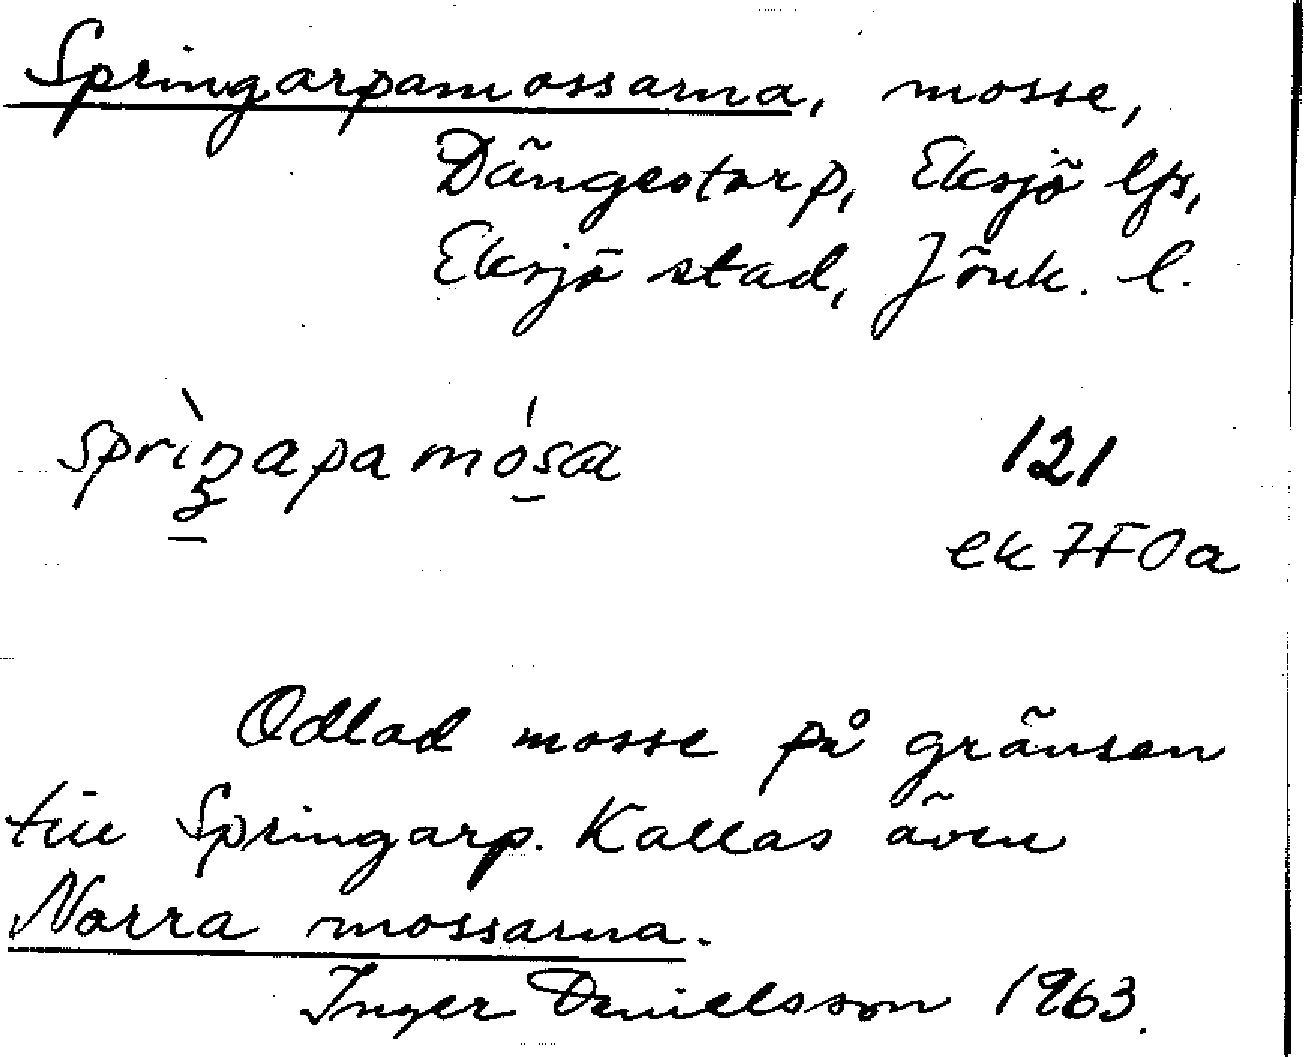 Springarpamossarna, mosse,
Dängestorp, Eksjö lfs,
Eksjö stad, Jönk. l.
121
ek 7F0a
Odlad mosse på gränsen
till Springarp. Kallas även
Norra mossarna.
Inger Danielsson 1963.